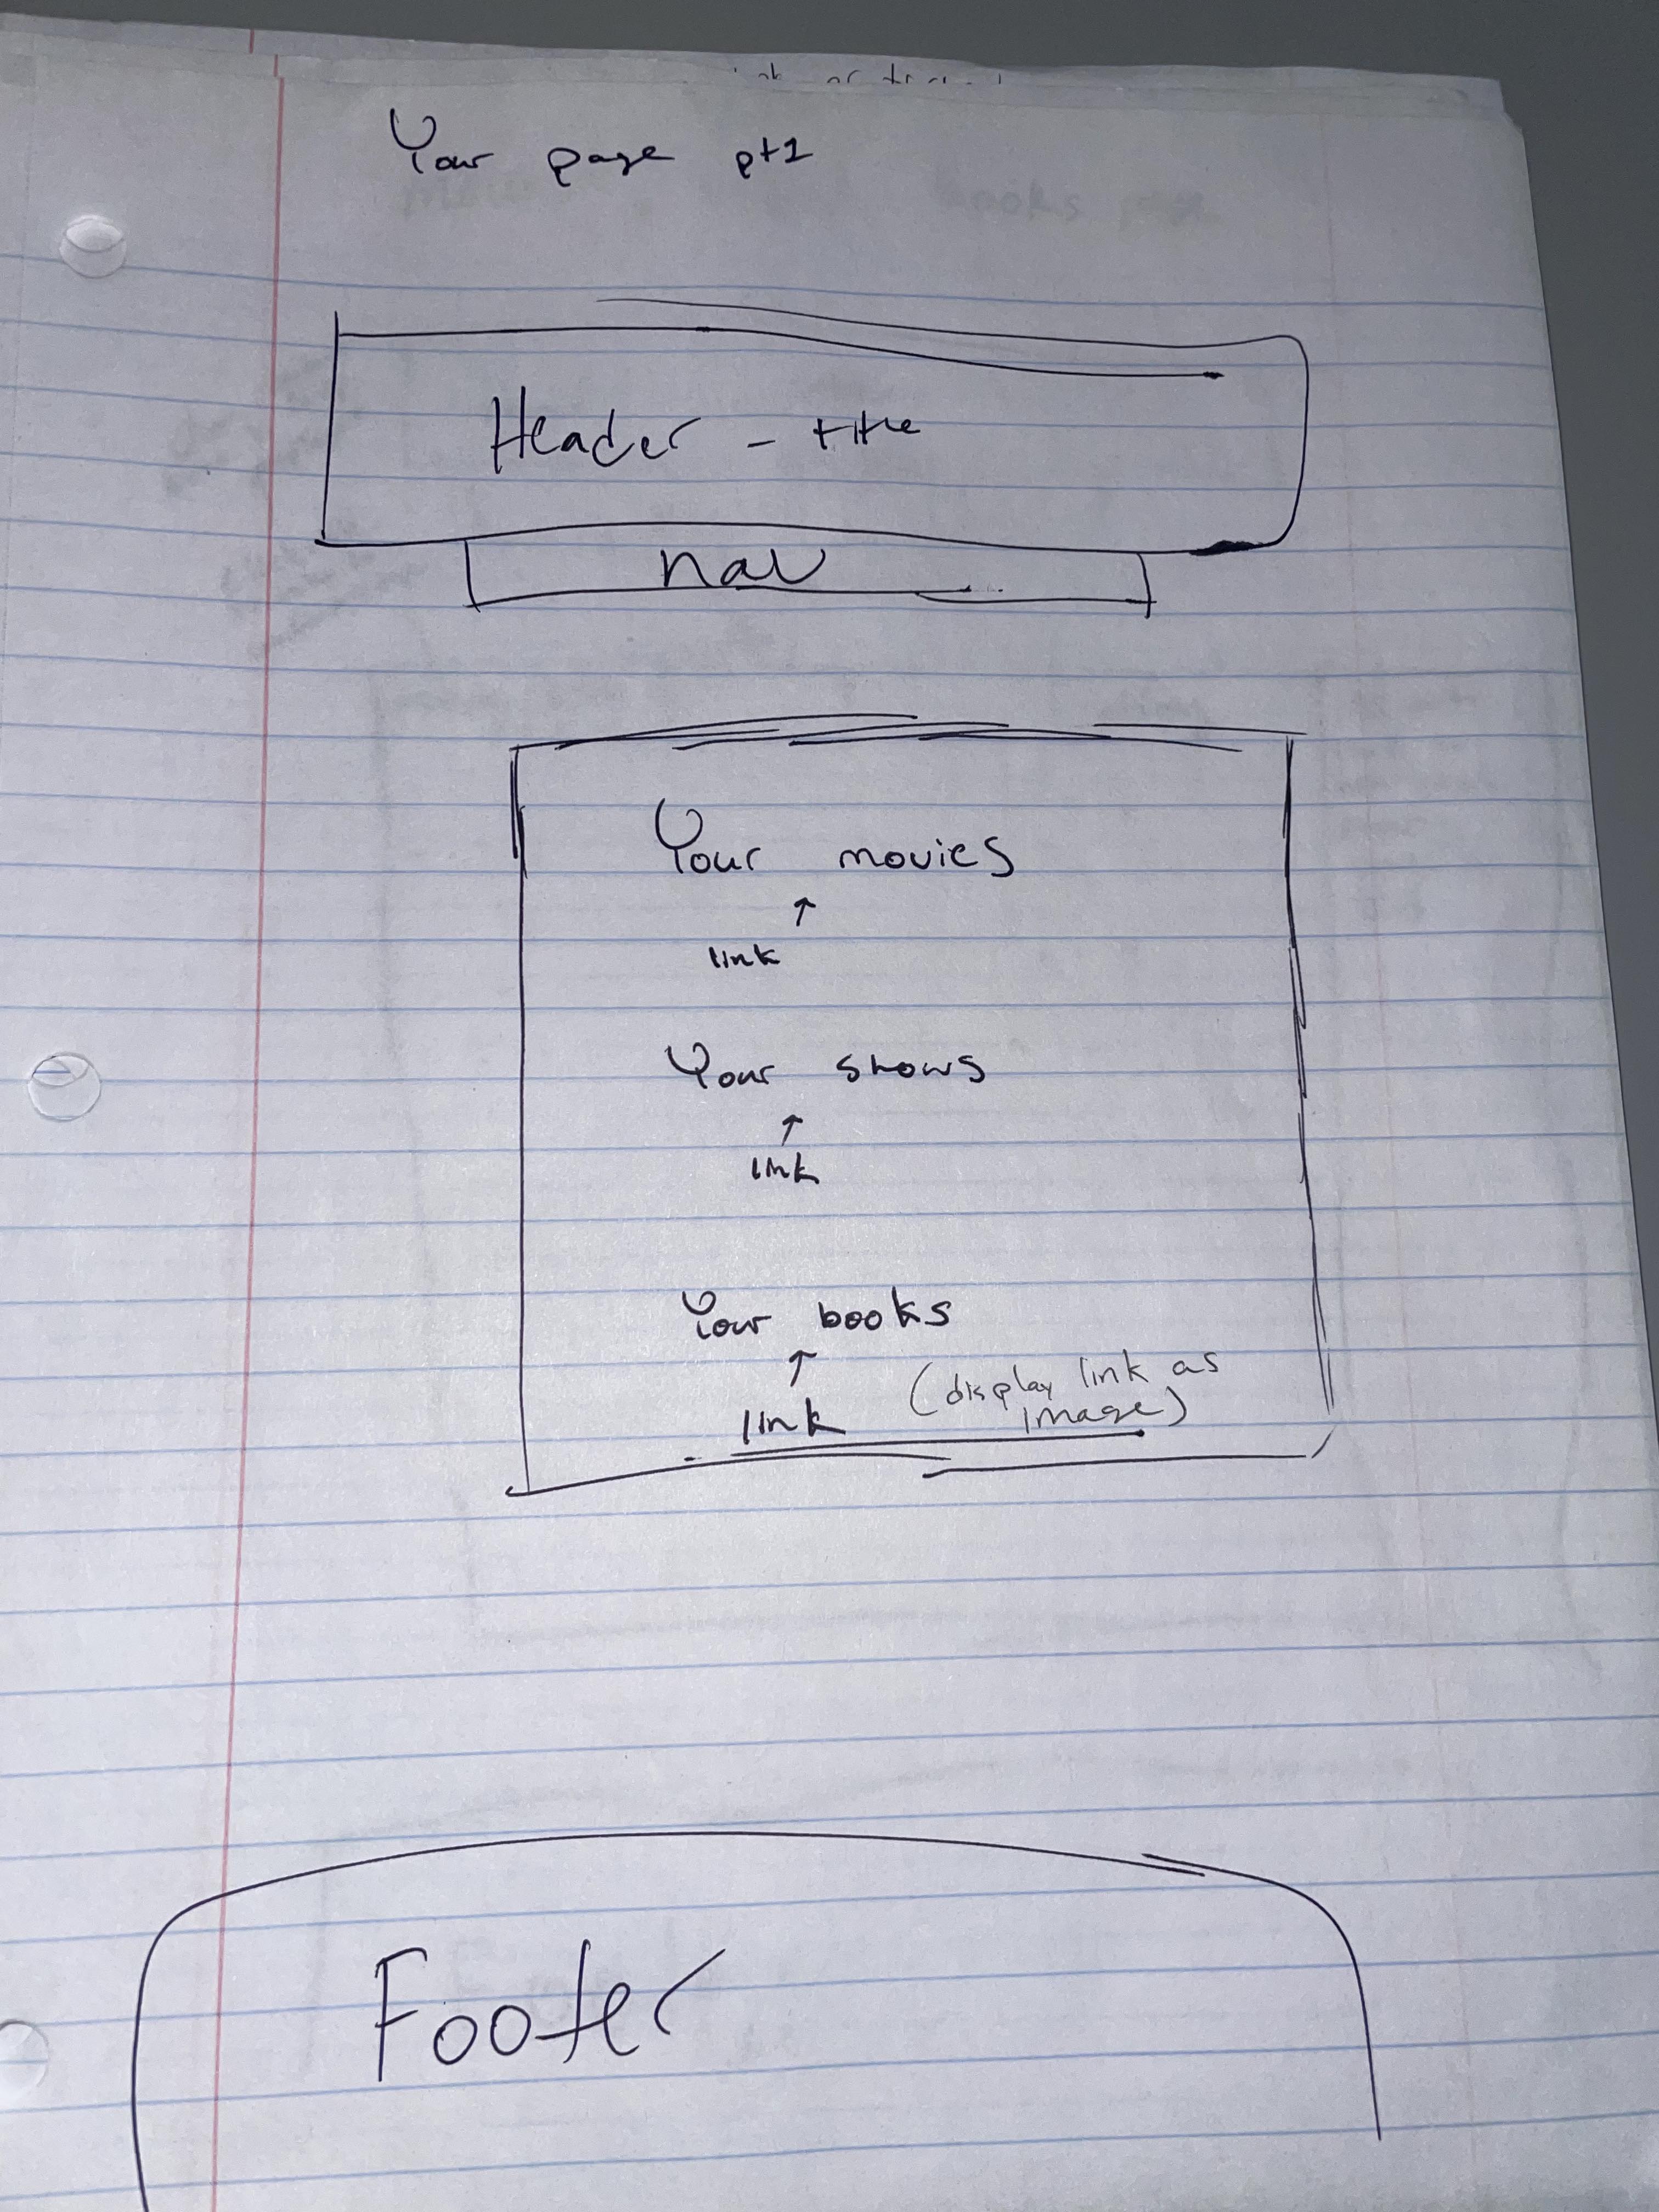 Your page pt1
Header - title
nav
Your movies
↑
link
Your shows
↑
link
Your books
↑
link (display link as
image)
Footer